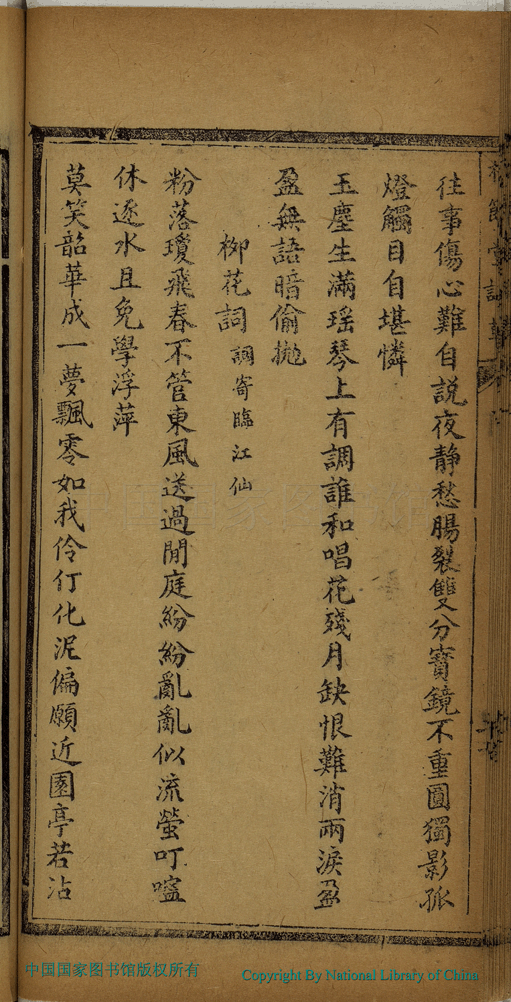 往事傷心難自説夜静愁腸裂雙分寳鏡不重圓獨影孤
燈觸目自堪憐
玉塵生滿瑶琴上有調誰和唱花殘月缺恨難消兩淚盈
盈無語暗偷抛
柳花詞調寄臨江仙
粉落瓊飛春不管東風送過閒庭紛紛亂亂似流螢叮嚀
休逐水且免學浮萍
莫笑韶華成一夢飄零如我伶仃化泥偏願近園亭若沾
中国国家图书馆版权所有
Copyright By National Library of China